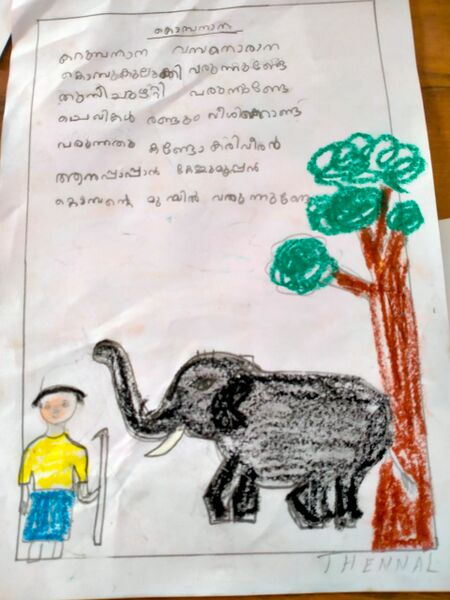 കൊമ്പനാന
കൊമ്പനാന വമ്പനൊരാന
കൊമ്പുകുലുക്കി വരുന്നുണ്ടേ
തുമ്പിചുഴറ്റി വരുന്നുണ്ടേ
ചെവികൾ രണ്ടും വീശിക്കൊണ്ട്
വരുന്നതു കണ്ടോ കരിവീരൻ
ആനപ്പാപ്പാൻ കേമുമൂപ്പൻ
കൊമ്പന്റെ മുമ്പിൽ വരുന്നുണ്ടേ
THENNAL